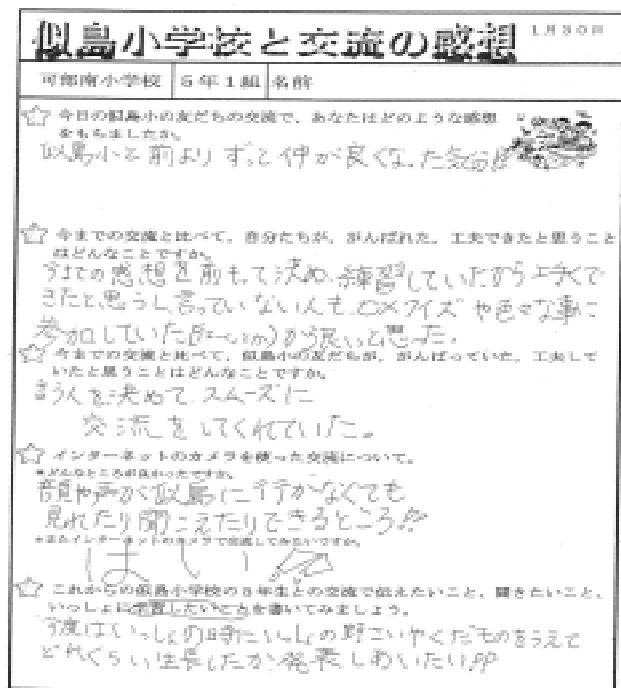 似島小学校と交流の感想 1月30日
可部南小学校 5年1組 名前
☆ 今日の似島小の友だちの交流で、あなたはどのような感想
をもちましたか。
似島小と前よりずっと仲が良くなった気分!!
☆ 今までの交流と比べて、自分たちが、がんばれた、工夫できたと思うこと
はどんなことですか。
の感想を前もって決め、練習していたから上手くで
きたと思うし言っていない人も、○×クイズや色々な事に
参加していた から良いと思った。
☆ 今までの交流と比べて、似島小の友だちが、がんばっていた、工夫して
いたと思うことはどんなことですか。
言う人を決めて、スムーズに
交流をしてくれていた。
☆ インターネットのカメラを使った交流について。
*どんなところが良かったですか。
顔や声が似島に行かなくても
見れたり聞こえたりできるところ!!
*またインターネットのカメラで交流してみたいですか。
はい
☆ これからの似島小学校の5年生との交流で伝えたいこと、聞きたいこと、
いっしょに学習したいことを書いてみましょう。
今度はいっしょの時にいっしょの野さいやくだものをうえて
どれくらい生長したか発表しあいたい!!